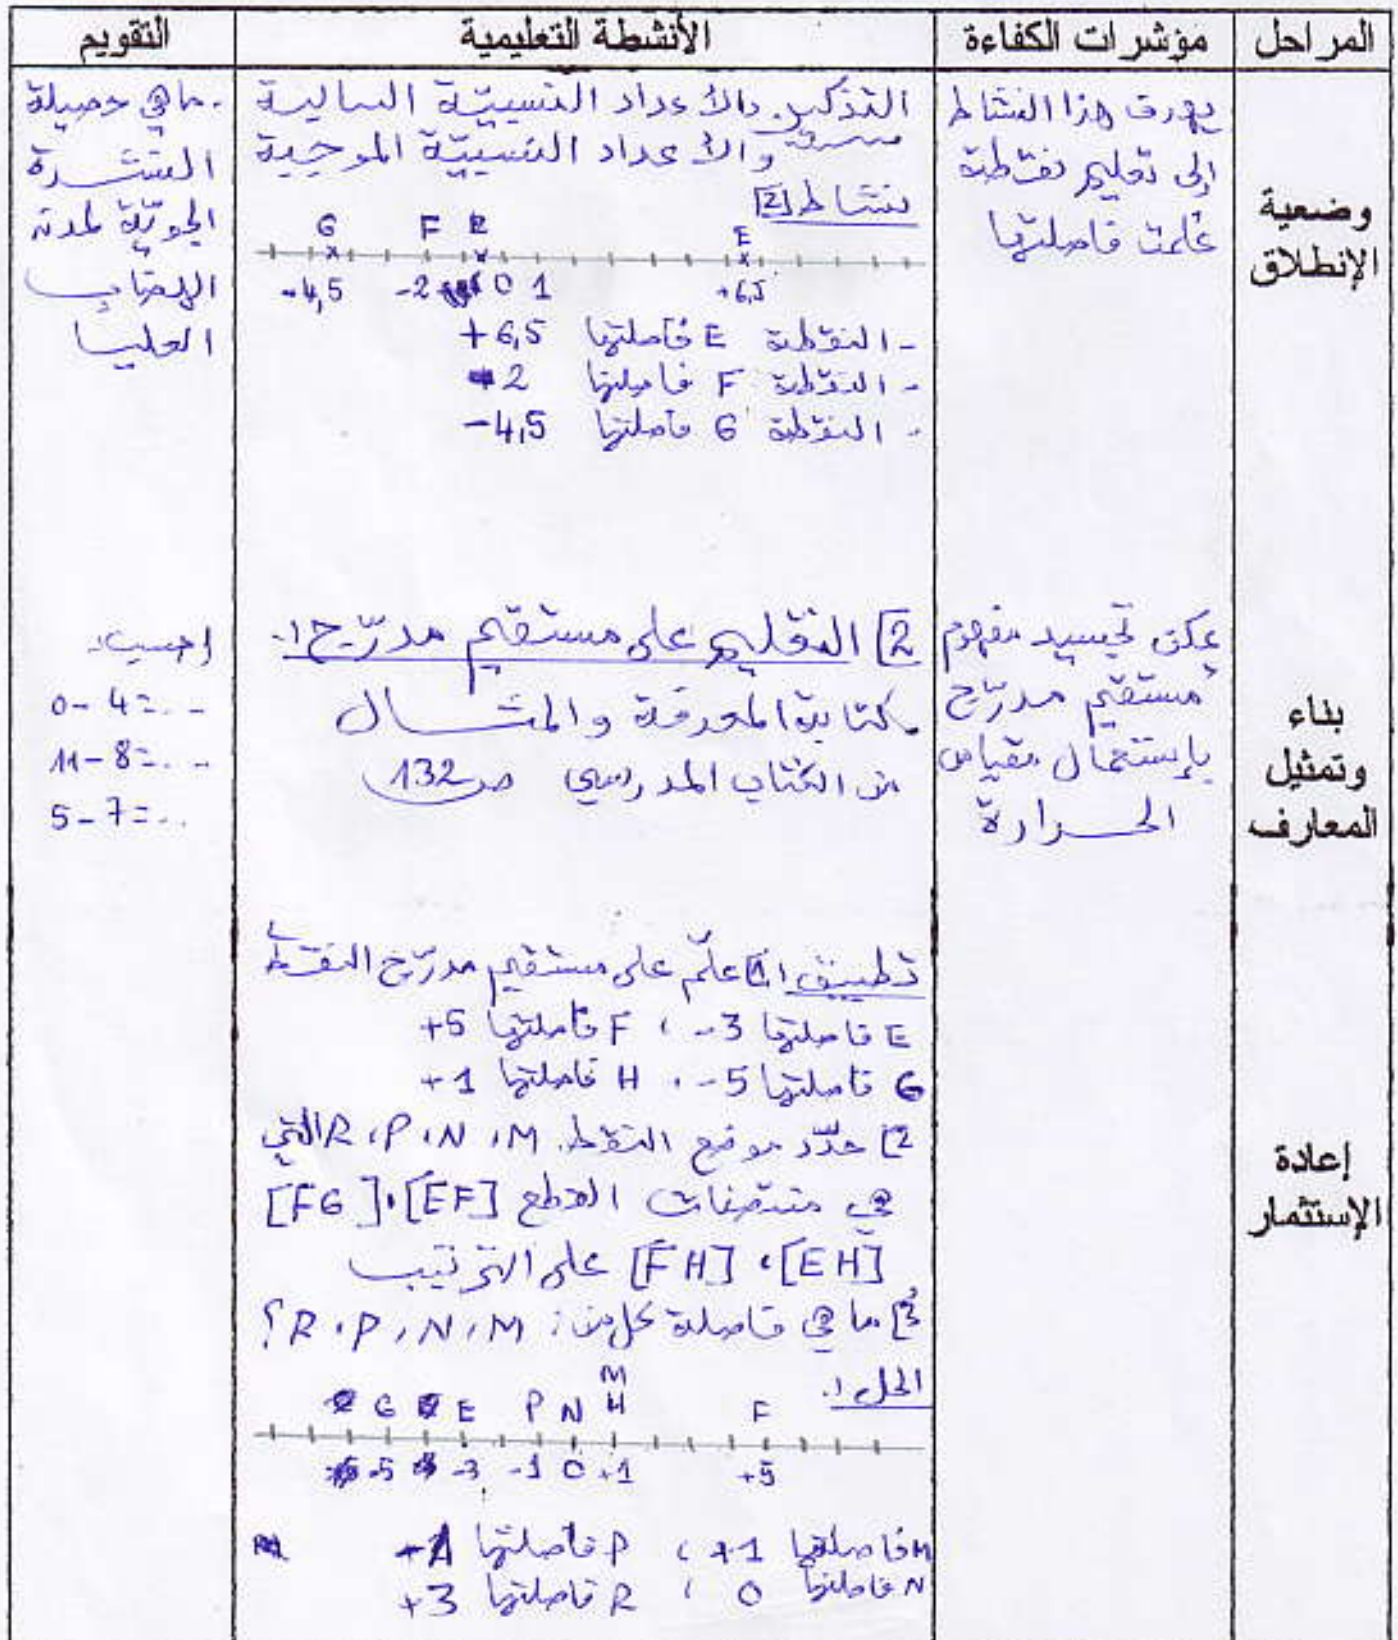 المراحل
مؤشرات الكفاءة
الأنشطة التعليمية
التقويم
وضعية
الإنطلاق
يهدف هذا النشاط
إلى تعليم نقطة
علمت فاصلتها
التذكير بالأعداد النسبية السالبة
والأعداد النسبية الموجبة
نشاط 2]
G F E
-4,5 -2 0 1 +6,5
- النقطة E فاصلتها +6,5
- النقطة F فاصلتها 2
- النقطة G فاصلتها -4,5
ماهي حصيلة
النشرة
الجوية لمدن
الهضاب
العليا
بناء
وتمثيل
المعارف
يمكن تجسيد مفهوم
مستقيم مدرّج
بإستعمال مقياس
الحرارة
2] التعليم على مستقيم مدرّج:
كتابة المعرفة والمثال
من الكتاب المدرسي ص 132
احسب:
0 - 4 = ...
11 - 8 = ...
5 - 7 = ...
إعادة
الإستثمار
تطبيق: 1] علّم على مستقيم مدرّج النقط
E فاصلتها -3 ، F فاصلتها +5
G فاصلتها -5 ، H فاصلتها +1
2] حدّد موضع النقط M، N، P، R التي
هي منتصفات القطع [EF]، [FG]
[EH]، [FH] على الترتيب
3] ما هي فاصلة كل من: M، N، P، R؟
الحل:
G E P N M H F
-5 -3 -1 0 +1 +5
M فاصلتها +1 ، P فاصلتها
N فاصلتها 0 ، R فاصلتها +3